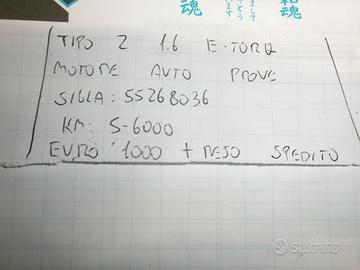 魂
TIPO 2 1.6 E-TORQ
MOTORE AUTO PROVE
SIGLA: 55268036
KM: 5-6000
EURO 1000 + RESO SPEDITO
subito